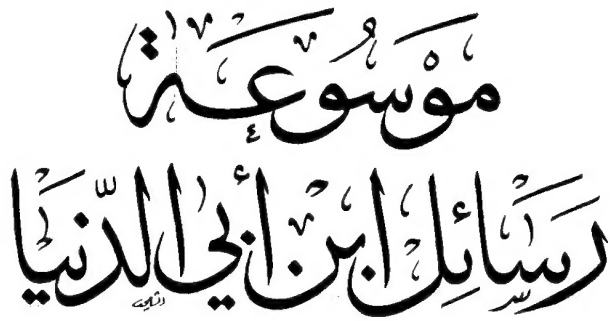 مَوْسُوعَة
رَسَائِل ابْن أَبِي الدّنْيَا